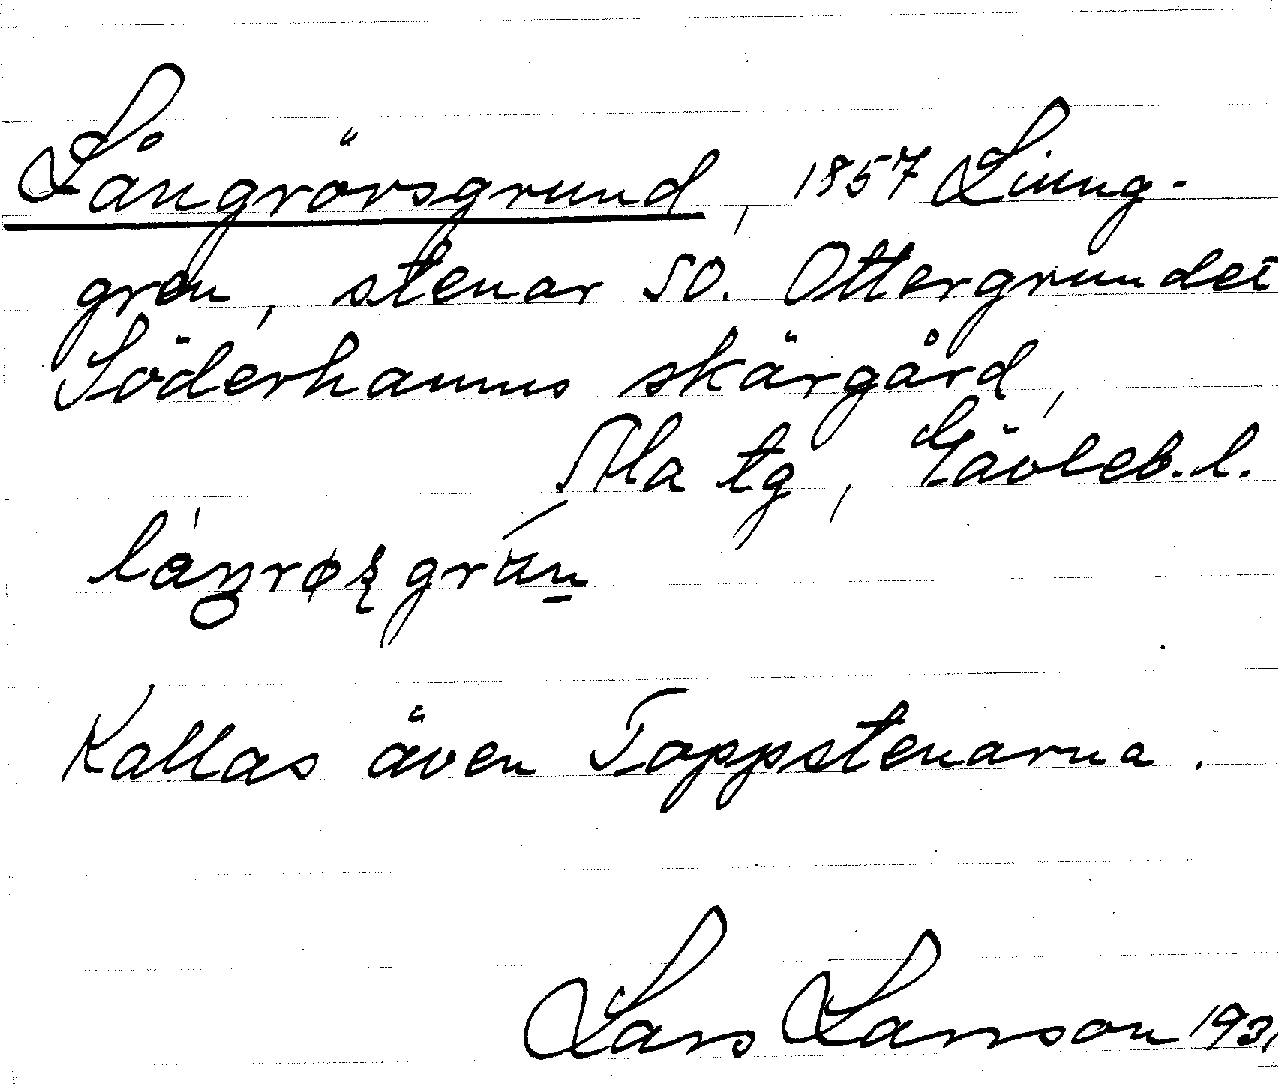 Långrörsgrund, 1857 Ljung-
gren, stenar SO. Ottergrundet
Söderhamns skärgård,
Ala tg, Gävleb. l.
Kallas även Tappstenarna.
Lars Larsson 193